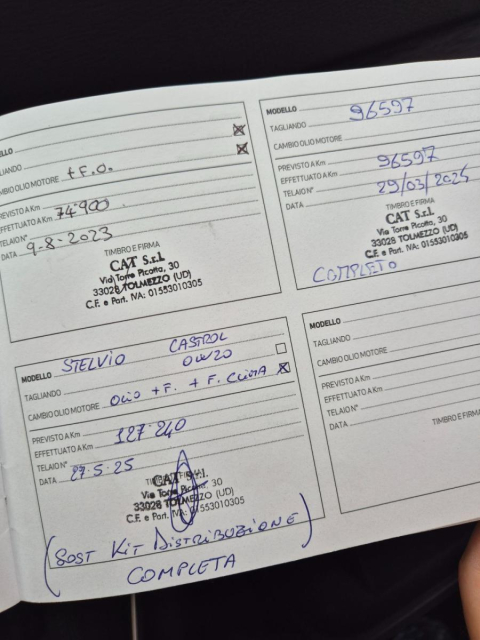 ELLO
TAGLIANDO
CAMBIO OLIO MOTORE + F.O.
PREVISTO A Km
EFFETTUATO A Km 74900
TELAIO N°
DATA 9-8-2023
TIMBRO E FIRMA
CAT S.r.l.
Via Torre Picotta, 30
33028 TOLMEZZO (UD)
C.F. e Part. IVA: 01553010305
MODELLO
TAGLIANDO 96597
CAMBIO OLIO MOTORE
PREVISTO A Km
EFFETTUATO A Km 96597
TELAIO N°
DATA 29/03/2024
TIMBRO E FIRMA
CAT S.r.l.
Via Torre Picotta, 30
33028 TOLMEZZO (UD)
C.F. e Part. IVA: 01553010305
COMPLETO
MODELLO STELVIO CASTROL
0W20
TAGLIANDO
CAMBIO OLIO MOTORE OLIO + F. + F. CLIMA
PREVISTO A Km
EFFETTUATO A Km 127.240
TELAIO N°
DATA 27.5.25
TIMBRO E FIRMA
CAT S.r.l.
Via Torre Picotta, 30
33028 TOLMEZZO (UD)
C.F. e Part. IVA: 01553010305
(SOST KIT DISTRIBUZIONE)
COMPLETA
MODELLO
TAGLIANDO
CAMBIO OLIO MOTORE
PREVISTO A Km
EFFETTUATO A Km
TELAIO N°
DATA
TIMBRO E FIRMA